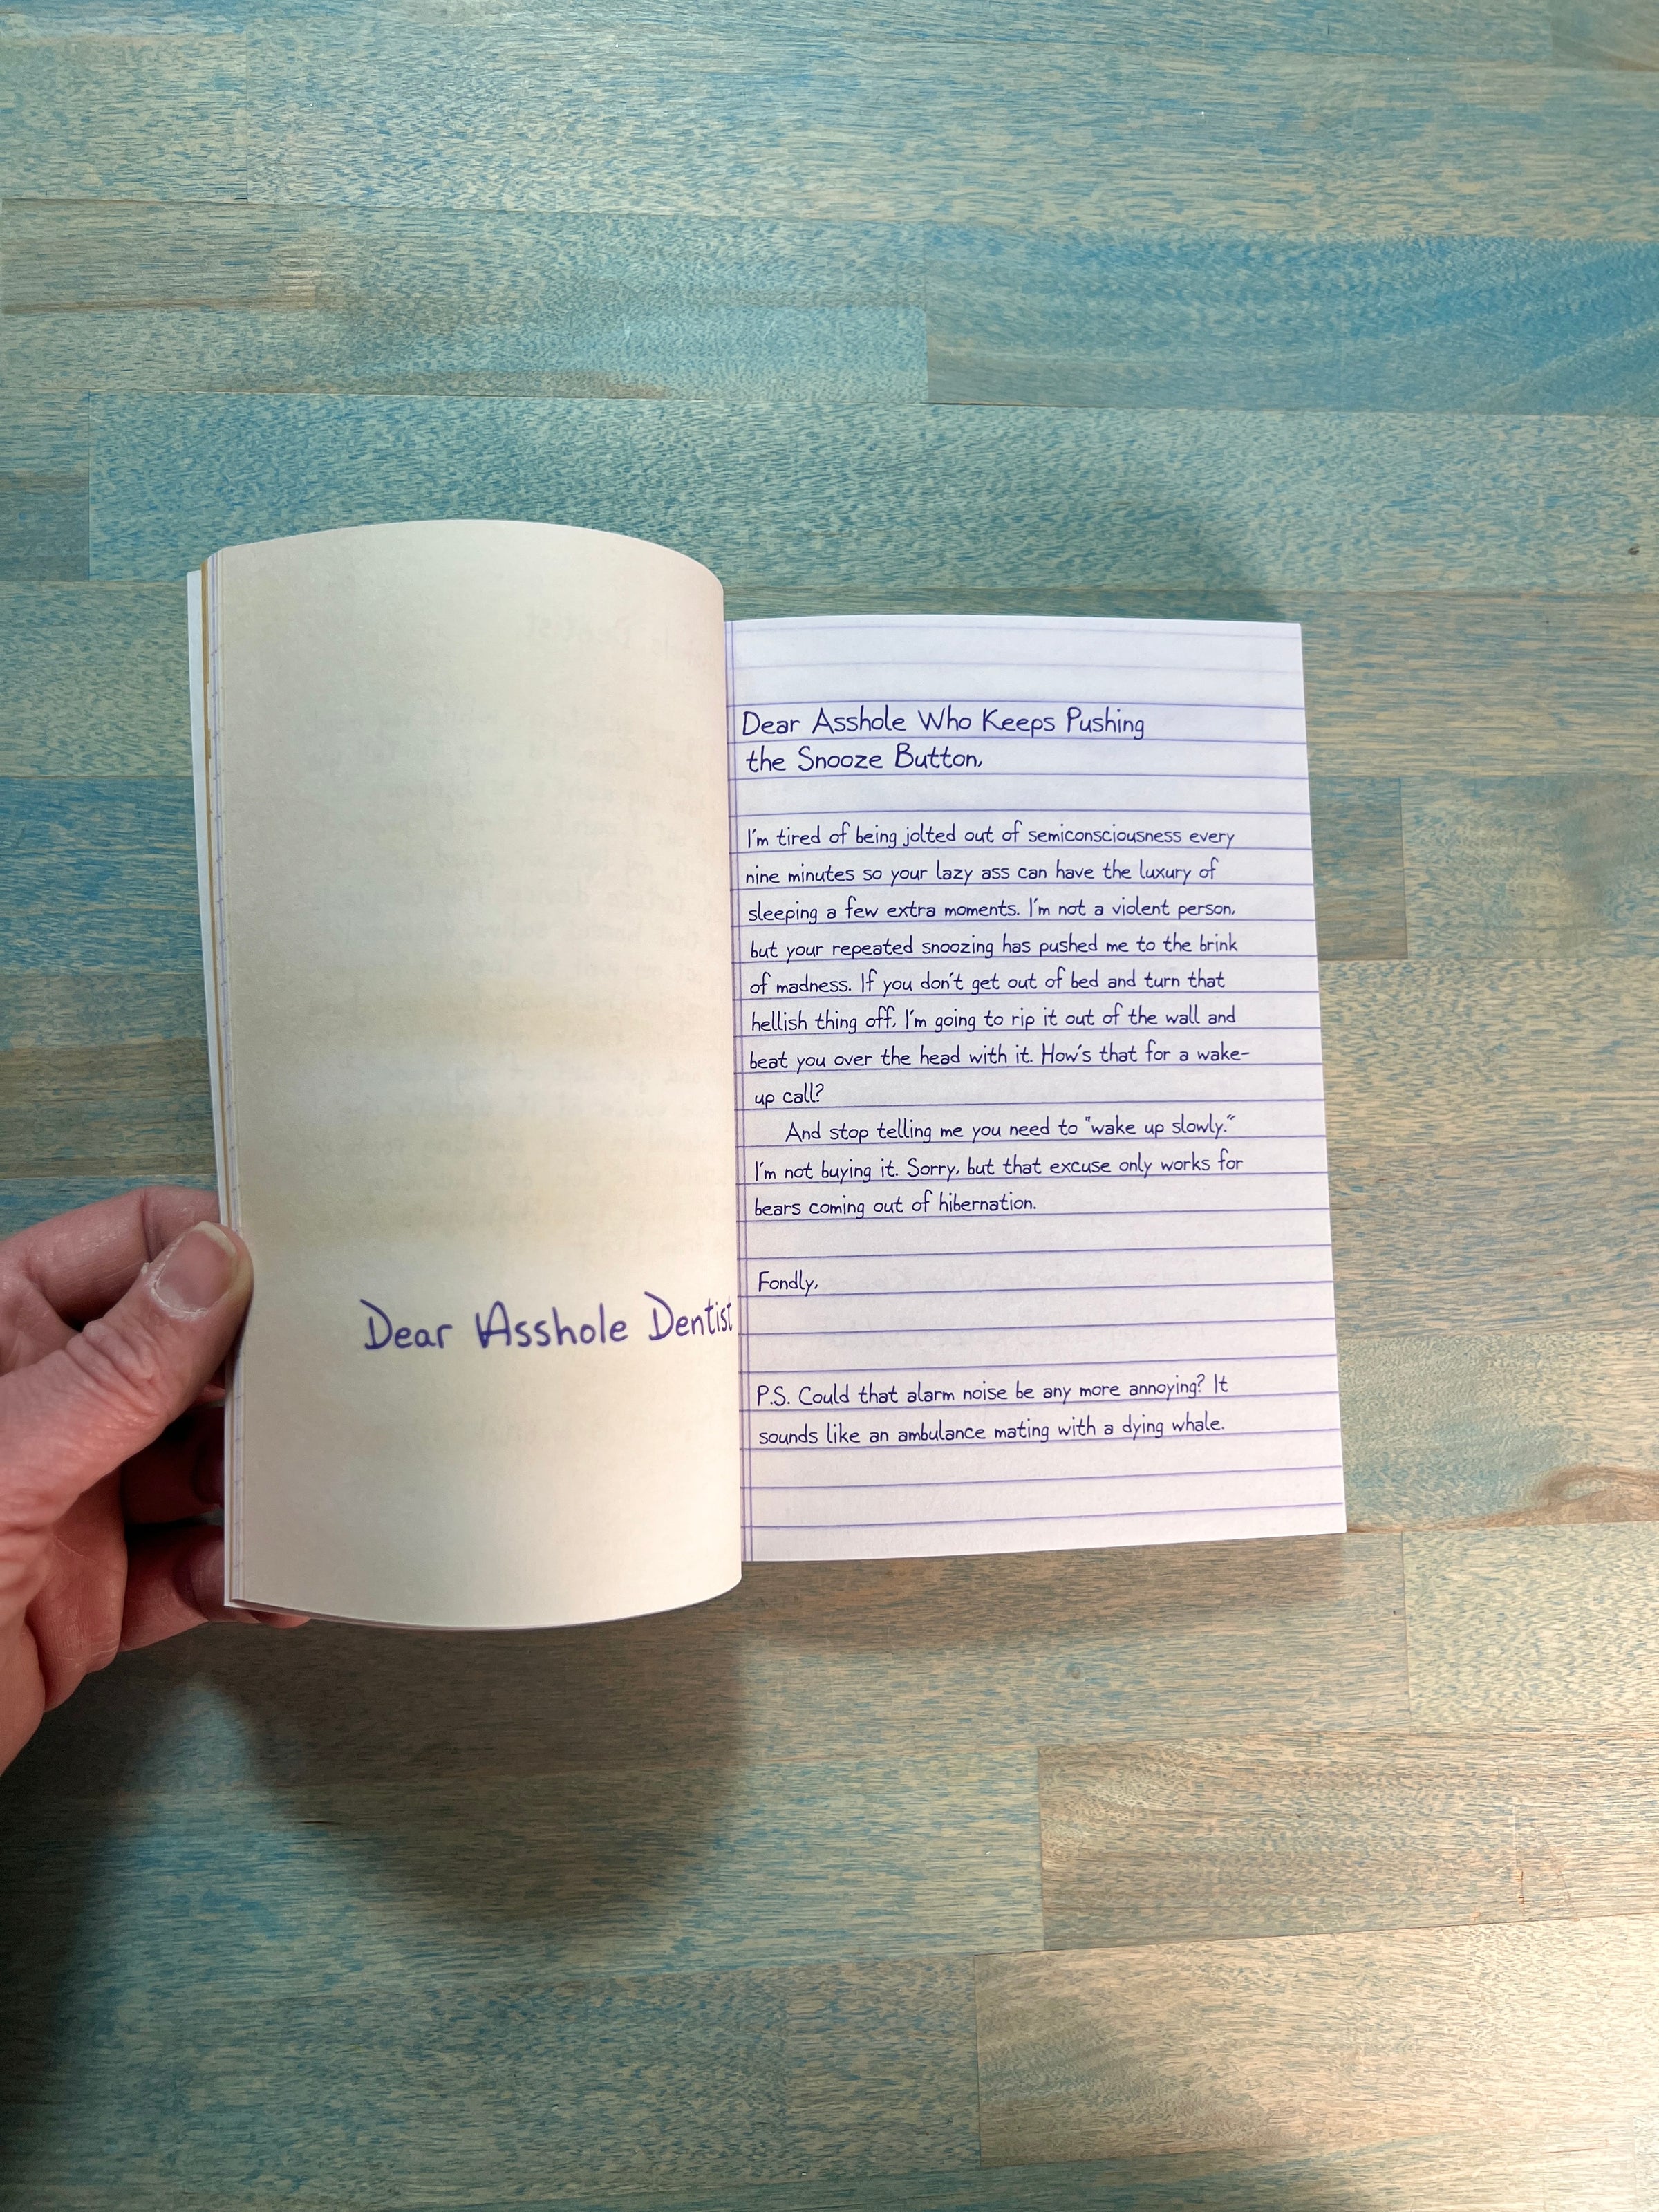 Dear Asshole Dentist
Dear Asshole Who Keeps Pushing
the Snooze Button,
I'm tired of being jolted out of semiconsciousness every
nine minutes so your lazy ass can have the luxury of
sleeping a few extra moments. I'm not a violent person,
but your repeated snoozing has pushed me to the brink
of madness. If you don't get out of bed and turn that
hellish thing off, I'm going to rip it out of the wall and
beat you over the head with it. How's that for a wake-
up call?
And stop telling me you need to "wake up slowly."
I'm not buying it. Sorry, but that excuse only works for
bears coming out of hibernation.
Fondly,
P.S. Could that alarm noise be any more annoying? It
sounds like an ambulance mating with a dying whale.